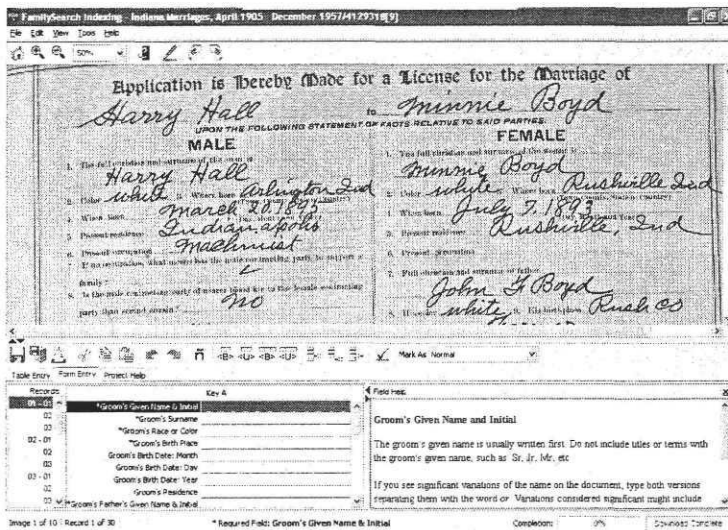 FamilySearch Indexing - Indiana Marriages, April 1905 December 1957/4129318[9]
File Edit View Tools Help
50%
Application is Hereby Made for a License for the Marriage of
Harry Hall to Minnie Boyd
UPON THE FOLLOWING STATEMENT OF FACTS RELATIVE TO SAID PARTIES.
MALE
1. The full christian and surname of the man is
Harry Hall
2. Color white Where born Arlington Ind
4. When born March 20, 1895
5. Present residence Indianapolis
6. Present occupation Machinist
7. If no occupation, what means has the male contracting party to support a
family?
8. Is the male contracting party of nearer blood kin to the female contracting
party than second cousin? no
FEMALE
1. The full christian and surname of the woman is
Minnie Boyd
2. Color white Where born Rushville Ind
4. When born July 7, 1893
5. Present residence Rushville, Ind
6. Present occupation
7. Full christian and surname of father
John F Boyd
8. His color white 9. His birthplace Rush Co
Mark As Normal
Table Entry Form Entry Project Help
Records
01 - 01
02
03
02 - 01
02
03
03 - 01
02
03
Key A
*Groom's Given Name & Initial
*Groom's Surname
*Groom's Race or Color
*Groom's Birth Place
Groom's Birth Date: Month
Groom's Birth Date: Day
Groom's Birth Date: Year
Groom's Residence
*Groom's Father's Given Name & Initial
Field Help
Groom's Given Name and Initial
The groom's given name is usually written first. Do not include titles or terms with
the groom's given name, such as Sr, Jr, Mr, etc
If you see significant variations of the name on the document, type both versions
separating them with the word or Variations considered significant might include
Image 1 of 10 : Record 1 of 30
* Required Field: Groom's Given Name & Initial
Completion: 0%
Download Complete